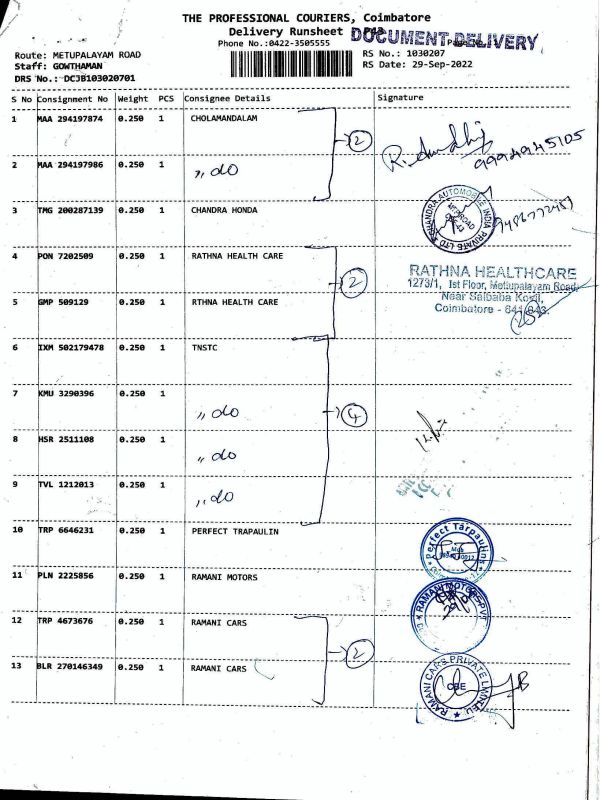 THE PROFESSIONAL COURIERS, Coimbatore
Delivery Runsheet
DOCUMENT DELIVERY
Phone No.:0422-3505555
Route: METUPALAYAM ROAD
RS No.: 1030207
Staff: GOWTHAMAN
RS Date: 29-Sep-2022
DRS No.: DCJB103020701
S No Consignment No Weight PCS Consignee Details Signature
1 MAA 294197874 0.250 1 CHOLAMANDALAM
2
9994945105
2 MAA 294197986 0.250 1 ,, do
3 TMG 200287139 0.250 1 CHANDRA HONDA
CHANDRA AUTOMOBILE INDIA PRIVATE LTD
4 PON 7202509 0.250 1 RATHNA HEALTH CARE
2
RATHNA HEALTHCARE
1273/1, Ist Floor, Mettupalayam Road,
Near Saibaba Kovil,
Coimbatore - 641 043.
5 GMP 509129 0.250 1 RTHNA HEALTH CARE
6 IXM 502179478 0.250 1 TNSTC
7 KMU 3290396 0.250 1 ,, do
4
8 HSR 2511108 0.250 1 ,, do
9 TVL 1212013 0.250 1 ,, do
10 TRP 6646231 0.250 1 PERFECT TRAPAULIN
Perfect Tarpaulin
11 PLN 2225856 0.250 1 RAMANI MOTORS
RAMANI MOTORS PVT
12 TRP 4673676 0.250 1 RAMANI CARS
2
13 BLR 270146349 0.250 1 RAMANI CARS
RAMANI CARS PRIVATE LIMITED
CBE